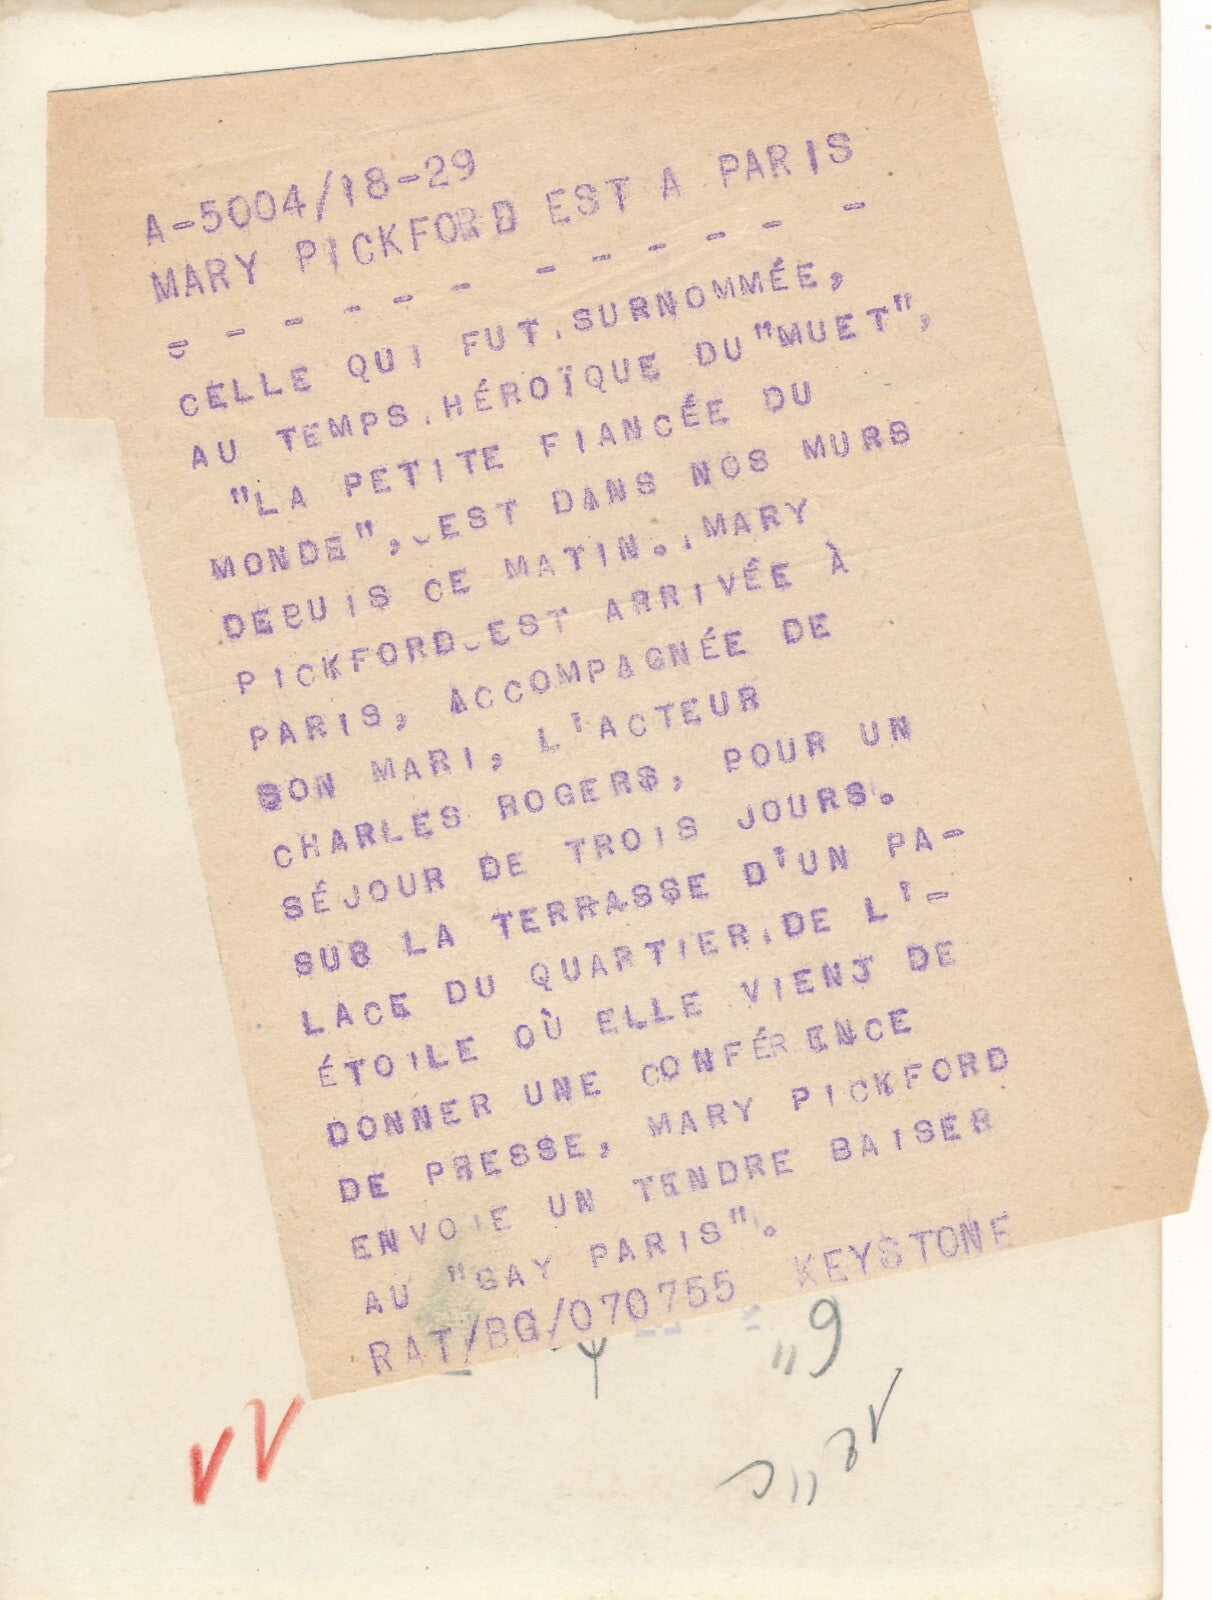 A-5004/18-29
MARY PICKFORD EST A PARIS
- - - - - - - - - - - -
CELLE QUI FUT.SURNOMMÉE,
AU TEMPS.HÉROÏQUE DU"MUET",
"LA PETITE FIANCÉE DU
MONDE", EST DANS NOS MURS
DEPUIS CE MATIN. MARY
PICKFORD EST ARRIVÉE À
PARIS, ACCOMPAGNÉE DE
SON MARI, L'ACTEUR
CHARLES ROGERS, POUR UN
SÉJOUR DE TROIS JOURS.
SUR LA TERRASSE D'UN PA-
LACE DU QUARTIER.DE L'-
ÉTOILE OÙ ELLE VIENT DE
DONNER UNE CONFÉRENCE
DE PRESSE, MARY PICKFORD
ENVOIE UN TENDRE BAISER
AU "GAY PARIS".
RAT/BG/070755 KEYSTONE